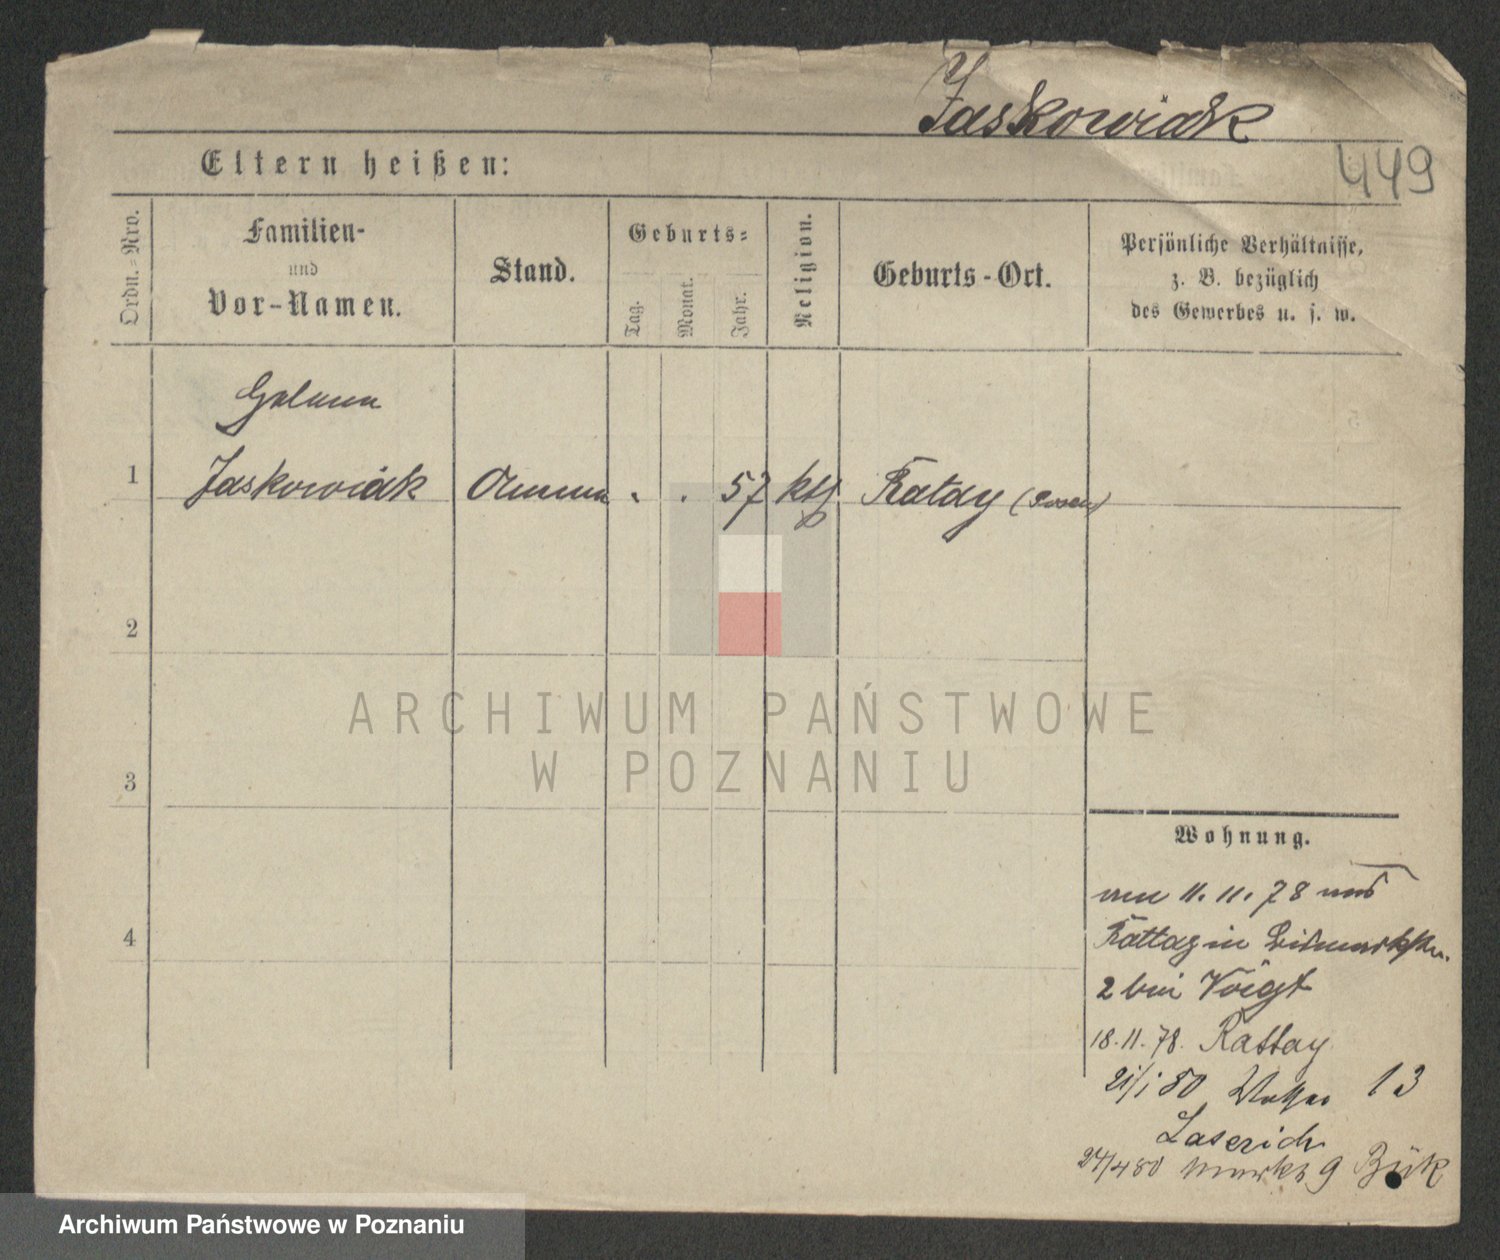 Jaskowiak
449
Eltern heißen:
Ordn.-Nro.
Familien-
und
Vor-Namen.
Stand.
Geburts-
Tag.
Monat.
Jahr.
Religion.
Geburts-Ort.
Persönliche Verhältnisse,
z. B. bezüglich
des Gewerbes u. s. w.
1 Jaskowiak Amme . . 57 kth Ratay (Posen)
2
3
4
ARCHIWUM PAŃSTWOWE
W POZNANIU
Wohnung.
11. 11. 78
Rattay in
2 bei Voigt
18. 11. 78. Rattay
21/1 80 13
Laserich
24/4 80 Markt 9 Bük
Archiwum Państwowe w Poznaniu